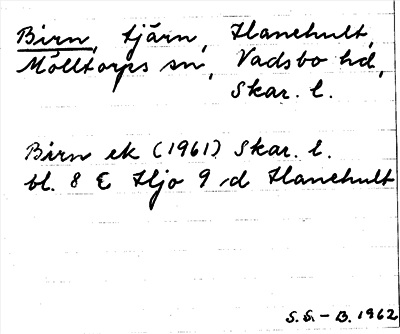 Birn, tjärn, Hanehult,
Mölltorps sn, Vadsbo hd,
Skar. l.
Birn ek (1961) Skar. l.
bl. 8 E Hjo 9 d Hanehult
S.S. - B. 1962